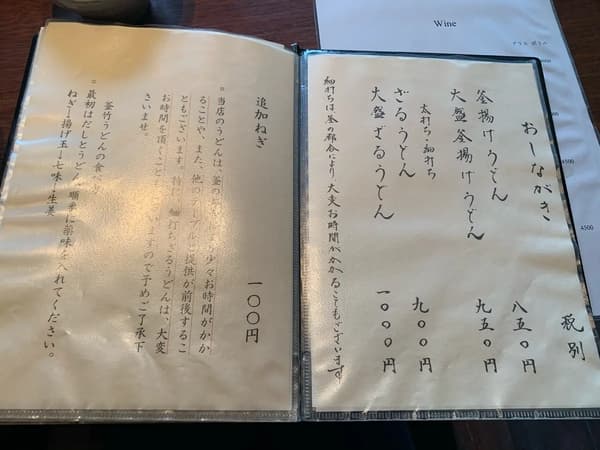 Wine
グラス ボトル
4500
4500
おしながき 税別
釜揚げうどん 八五〇円
大盛釜揚げうどん 九五〇円
太打ち・細打ち
ざるうどん 九〇〇円
大盛ざるうどん 一〇〇〇円
細打ちは釜の都合により、大変お時間がかかることもございます
追加ねぎ 一〇〇円
○当店のうどんは、釜の 少々お時間がかか
ることや、また、他のテーブルと提供が前後するこ
ともございます。特に、細打ちざるうどんは、大変
お時間を頂くこともございますので予めご了承下
さいませ。
釜竹うどんの食べ方
○最初はだしとうどん、順番に薬味を入れてください。
ねぎ→揚げ玉→七味→生姜